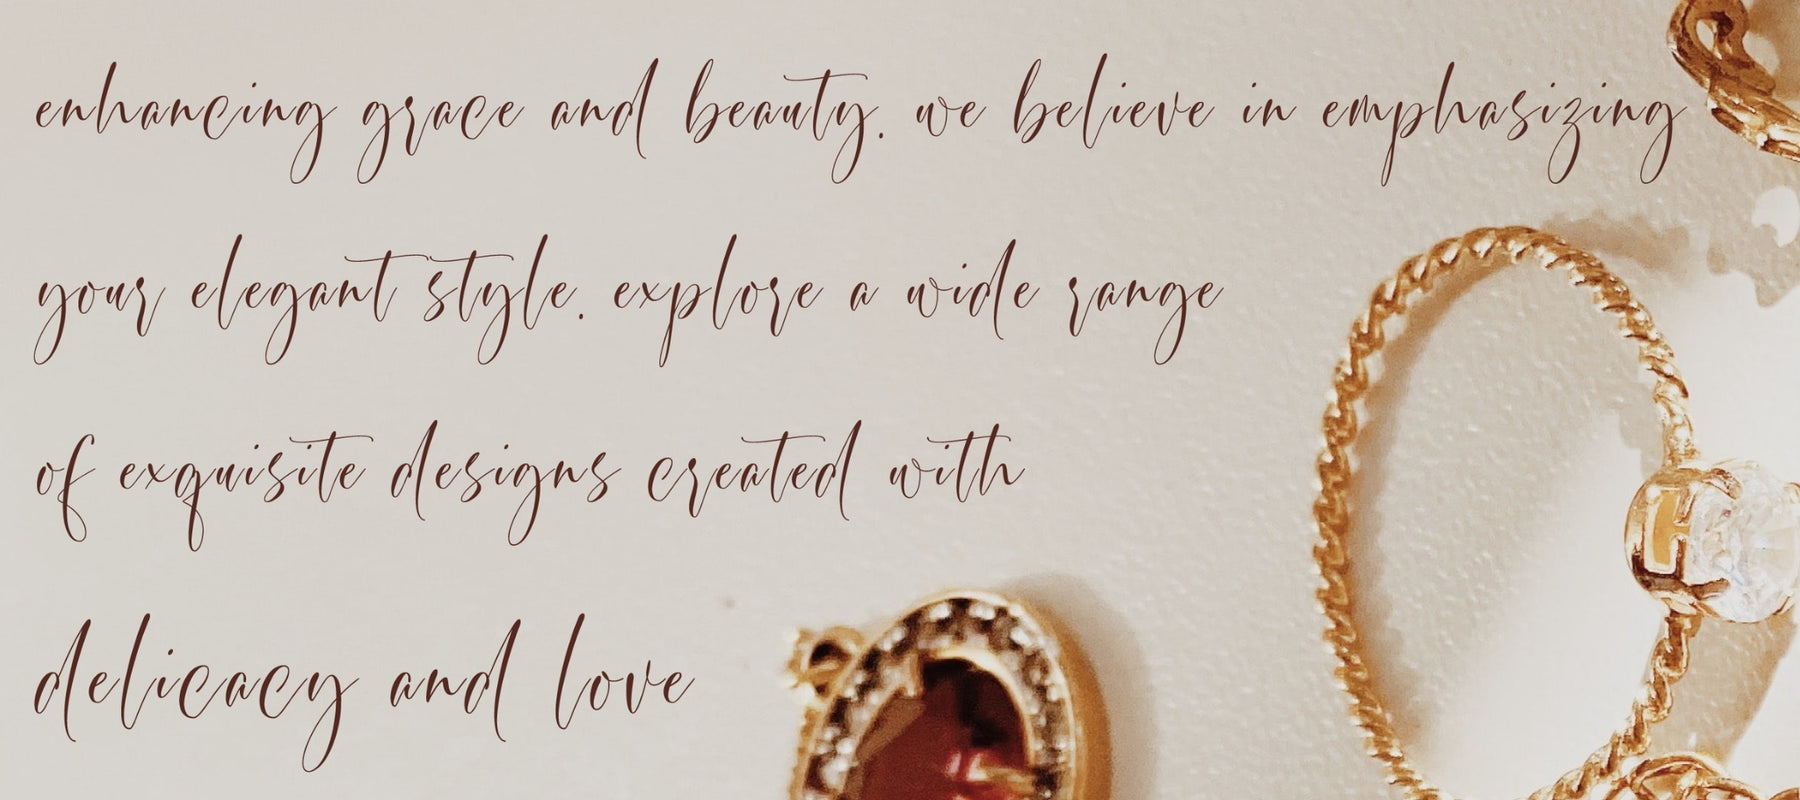 enhancing grace and beauty. we believe in emphasizing
your elegant style. explore a wide range
of exquisite designs created with
delicacy and love